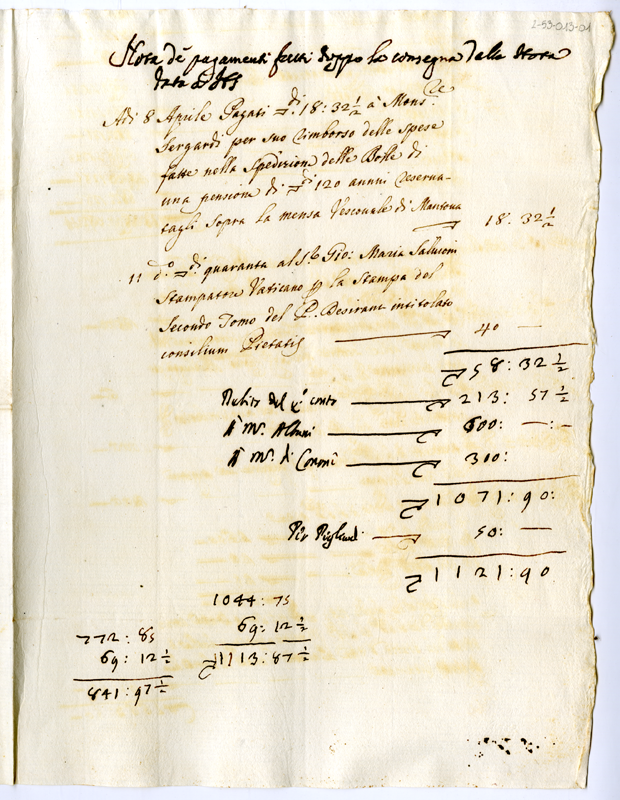 2-59-013-01
Nota de pagamenti fatti doppo la consegna della Nota
data
Adi 8 Aprile Pagati 18: 32½ à Mons.re
Sergardi per suo rimborso delle spese
fatte nella Spedizione delle Bolle di
una pensione di 120 annui reserva-
tagli sopra la mensa Vescovale di Mantova 18. 32½
11 d.o quaranta al S.r Gio: Maria Salvioni
Stampatore Vaticano la Stampa del
Secondo Tomo del P. Desirant intitolato
consilium Pietatis 40 —
58: 32½
Debito del conto 213: 57½
A M.r Albani 600: —:—
A M.r di 300:
1071: 90:
Per 50: —
1121: 90
1044: 75
69: 12½
1113: 87½
772: 85
69: 12½
841: 97½